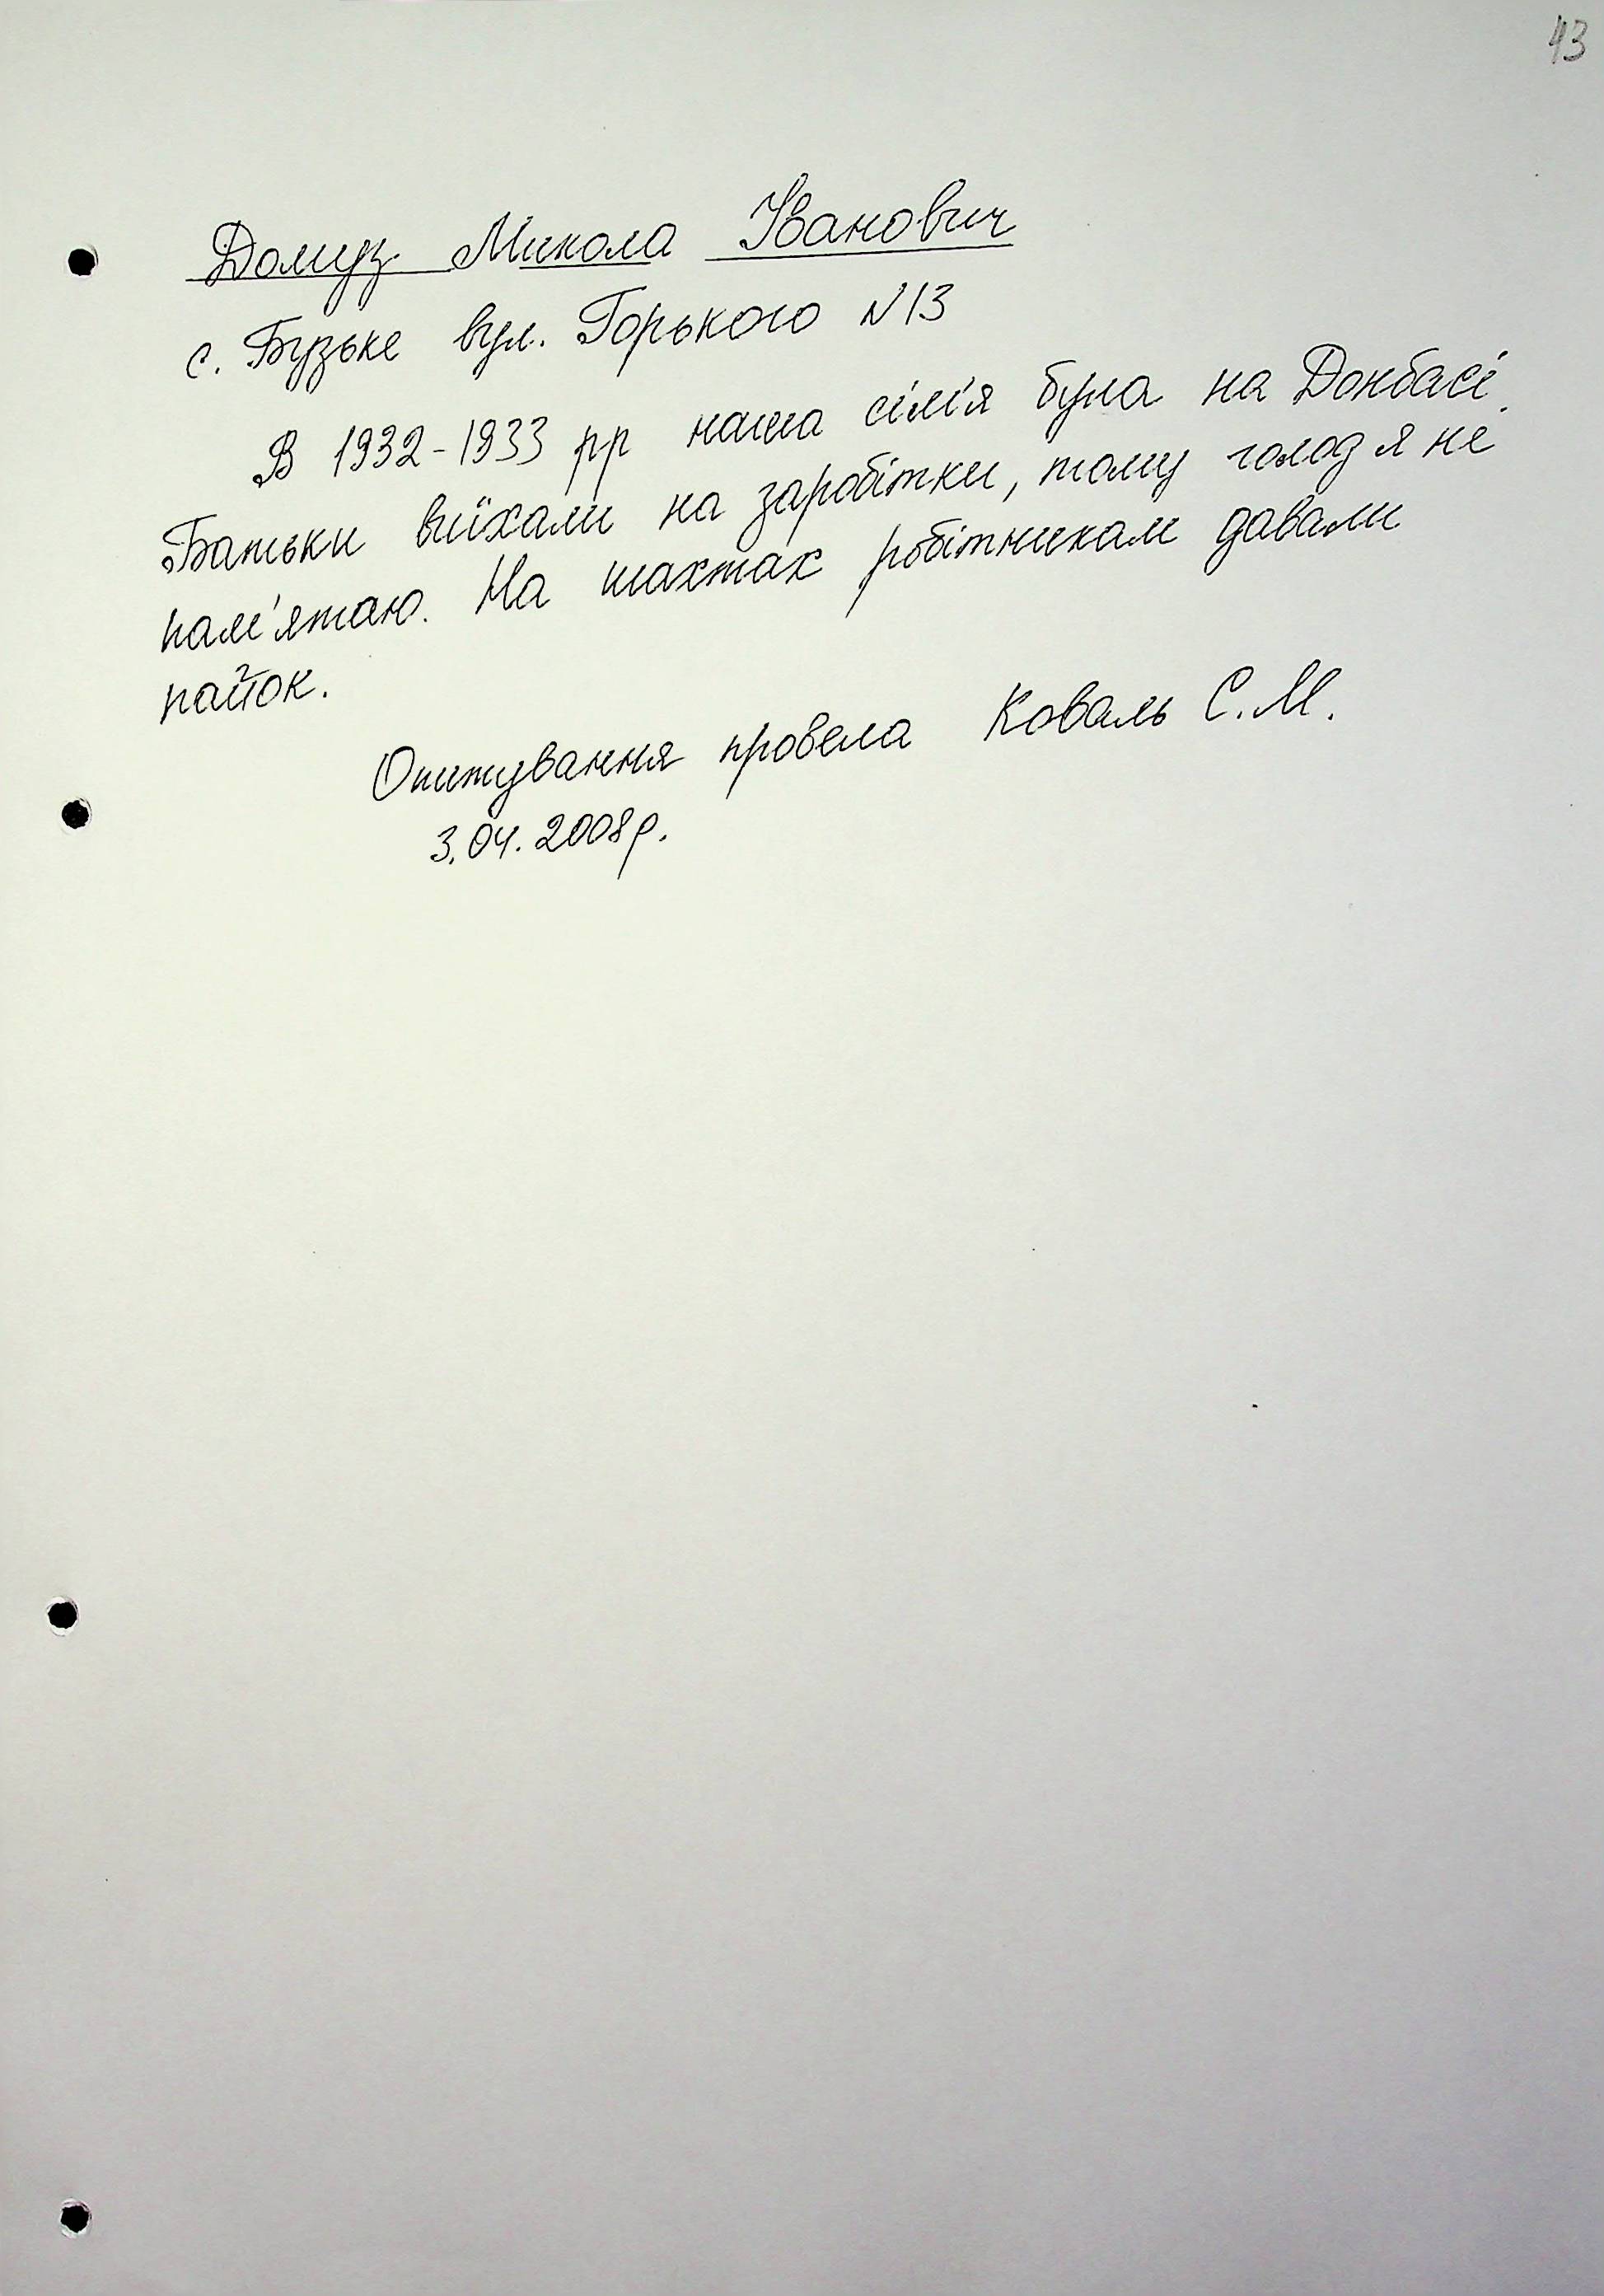 43
Домуз Микола Іванович
с. Бузьке вул. Горького N13
В 1932-1933 рр наша сім'я була на Донбасі.
Батьки виїхали на заробітки, тому голод я не
пам'ятаю. На шахтах робітникам давали
пайок.
Опитування провела Коваль С.М.
3.04.2008р.